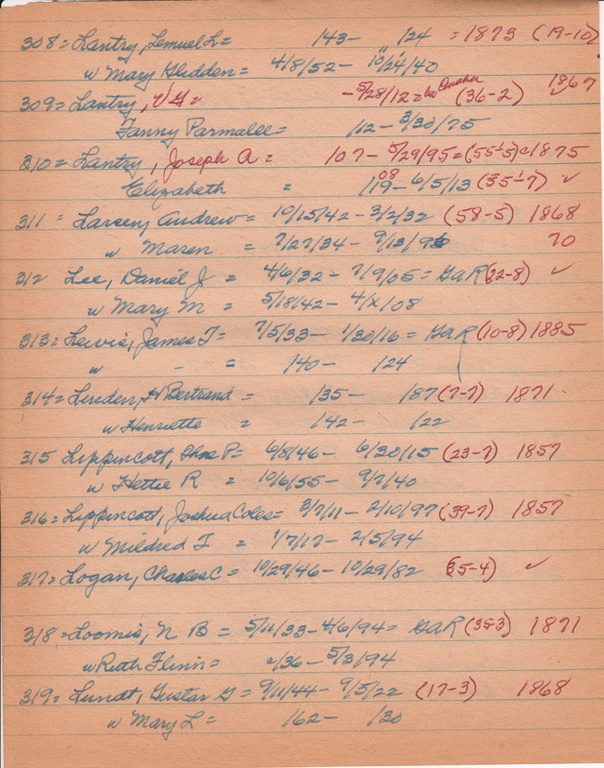 308 = Lantry, Lemuel L = 143 - 124 = 1873 (19-10)
w Mary Glidden = 4/8/52 - 10/24/40
309 = Lantry, V G = - 5/28/12 = Quaker (36-2) 1867
Fanny Parmalee = 12 - 3/30/75
310 = Lantry, Joseph A = 107 - 5/29/95 = (55-5) c1875
Elizabeth = 119 - 08 6/5/13 (55-7) ✓
311 = Larsen, Andrew = 10/15/42 - 2/2/32 (58-5) 1868
w Maren = 7/27/34 - 9/13/96 70
312 Lee, Daniel J = 4/6/32 - 7/9/05 = GaR (22-8) ✓
w Mary M = 5/18/42 - 4/x/08
313 = Lewis, James T = 7/5/33 - 1/30/16 = GaR (10-8) 1885
w - = 140 - 124
314 = Linden, H Bertrand = 135 - 187 (7-7) 1871
w Henriette = 142 - 122
315 Lippincott, P = 6/8/46 - 6/30/15 (23-7) 1857
w Hettie R = 10/6/55 - 9/2/40
316 = Lippincott, Joshua Coles = 3/7/11 - 2/10/97 (39-7) 1857
w Mildred T = 1/7/17 - 2/5/94
317 = Logan, Charles C = 10/29/46 - 10/29/82 (35-4) ✓
318 = Loomis, N B = 5/11/33 - 4/6/94 = GaR (35-3) 1871
w Ruth Flinn = c/36 - 5/3/94
319 = Lundt, Gustav G = 9/11/44 - 9/5/22 (17-3) 1868
w Mary L = 162 - 130